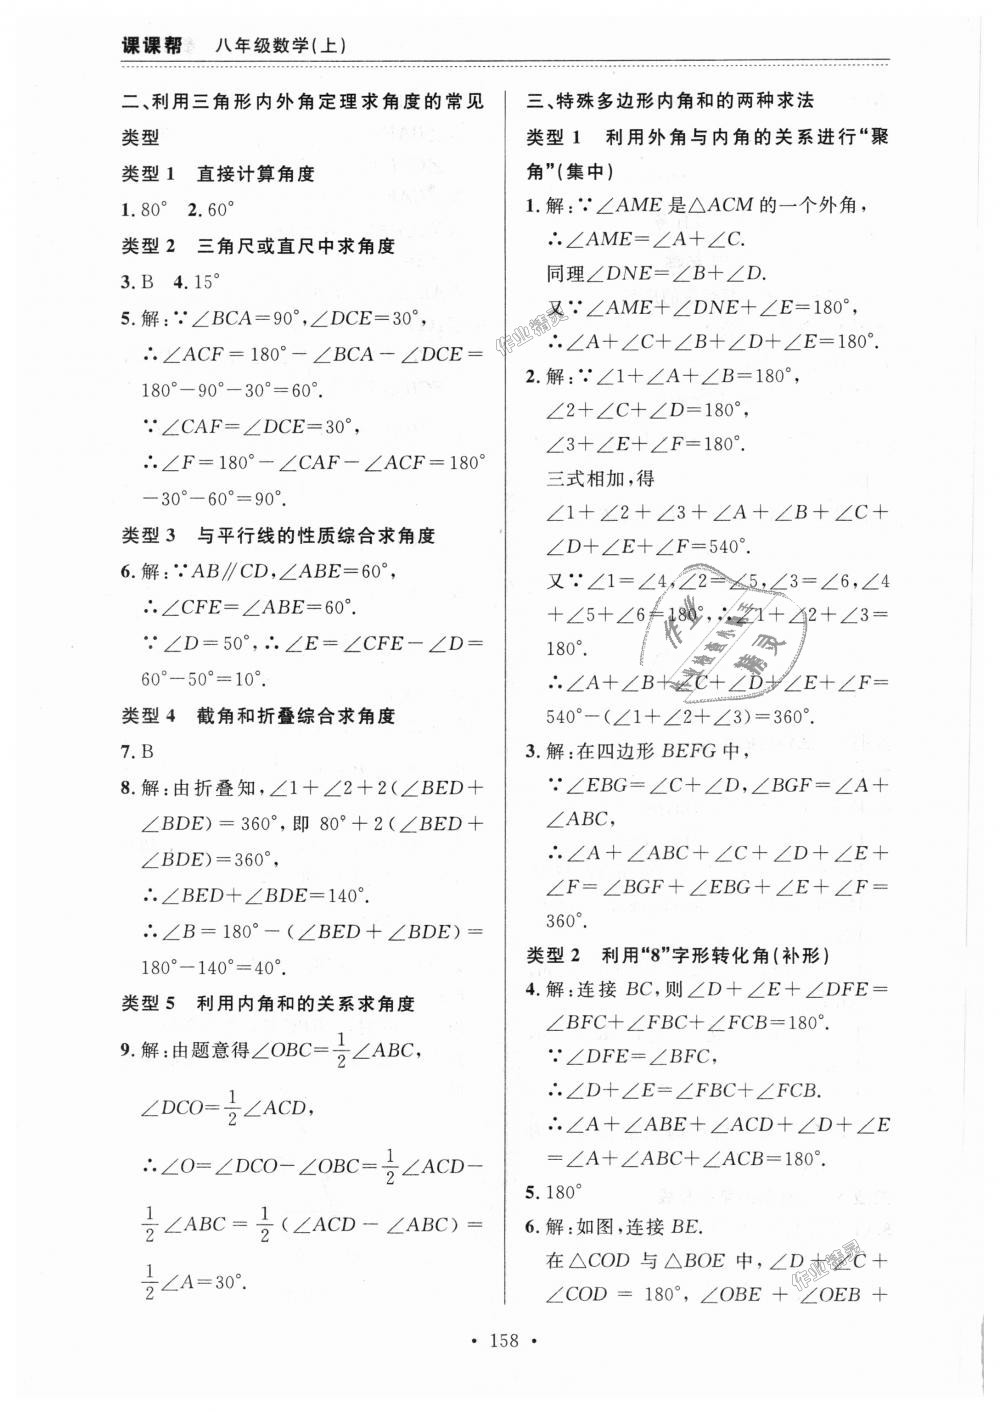 课课帮 八年级数学(上)
二、利用三角形内外角定理求角度的常见
类型
类型 1 直接计算角度
1. 80° 2. 60°
类型 2 三角尺或直尺中求角度
3. B 4. 15°
5. 解:∵∠BCA=90°,∠DCE=30°,
∴∠ACF=180°-∠BCA-∠DCE=
180°-90°-30°=60°.
∵∠CAF=∠DCE=30°,
∴∠F=180°-∠CAF-∠ACF=180°
-30°-60°=90°.
类型 3 与平行线的性质综合求角度
6. 解:∵AB∥CD,∠ABE=60°,
∴∠CFE=∠ABE=60°.
∵∠D=50°,∴∠E=∠CFE-∠D=
60°-50°=10°.
类型 4 截角和折叠综合求角度
7. B
8. 解:由折叠知,∠1+∠2+2(∠BED+
∠BDE)=360°,即 80°+2(∠BED+
∠BDE)=360°,
∴∠BED+∠BDE=140°.
∴∠B=180°-(∠BED+∠BDE)=
180°-140°=40°.
类型 5 利用内角和的关系求角度
9. 解:由题意得∠OBC=1/2∠ABC,
∠DCO=1/2∠ACD,
∴∠O=∠DCO-∠OBC=1/2∠ACD-
1/2∠ABC=1/2(∠ACD-∠ABC)=
1/2∠A=30°.
三、特殊多边形内角和的两种求法
类型 1 利用外角与内角的关系进行“聚
角”(集中)
1. 解:∵∠AME是△ACM的一个外角,
∴∠AME=∠A+∠C.
同理∠DNE=∠B+∠D.
又∵∠AME+∠DNE+∠E=180°,
∴∠A+∠C+∠B+∠D+∠E=180°.
2. 解:∵∠1+∠A+∠B=180°,
∠2+∠C+∠D=180°,
∠3+∠E+∠F=180°.
三式相加,得
∠1+∠2+∠3+∠A+∠B+∠C+
∠D+∠E+∠F=540°.
又∵∠1=∠4,∠2=∠5,∠3=∠6,∠4
+∠5+∠6=180°,∴∠1+∠2+∠3=
180°.
∴∠A+∠B+∠C+∠D+∠E+∠F=
540°-(∠1+∠2+∠3)=360°.
3. 解:在四边形BEFG中,
∵∠EBG=∠C+∠D,∠BGF=∠A+
∠ABC,
∴∠A+∠ABC+∠C+∠D+∠E+
∠F=∠BGF+∠EBG+∠E+∠F=
360°.
类型 2 利用“8”字形转化角(补形)
4. 解:连接BC,则∠D+∠E+∠DFE=
∠BFC+∠FBC+∠FCB=180°.
∵∠DFE=∠BFC,
∴∠D+∠E=∠FBC+∠FCB.
∴∠A+∠ABE+∠ACD+∠D+∠E
=∠A+∠ABC+∠ACB=180°.
5. 180°
6. 解:如图,连接BE.
在△COD与△BOE中,∠D+∠C+
∠COD=180°,∠OBE+∠OEB+
• 158 •
作业精灵
作业
作业检查小助手
精灵
作业精灵